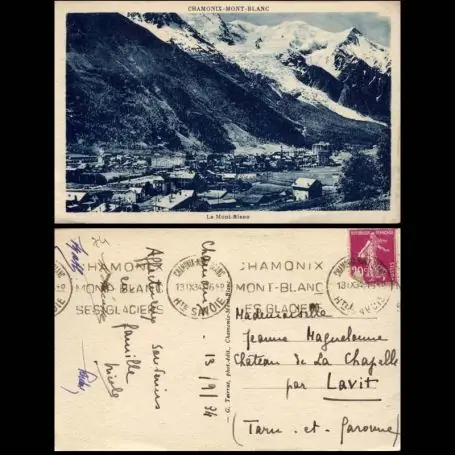 CHAMONIX-MONT-BLANC
Le Mont-Blanc
CHAMONIX
MONT-BLANC
SES GLACIERS
CHAMONIX-MONT-BLANC
13 IX 34
HTE SAVOIE
CHAMONIX
MONT-BLANC
SES GLACIERS
13 IX 34
HTE SAVOIE
20c
Chamonix 13/9/34
Affectueux souvenirs
famille
G. Tairraz, phot.-édit., Chamonix-Mont-Blanc
Mademoiselle
Jeanne Maguelonne
Château de La Chapelle
par Lavit
(Tarn-et-Garonne)